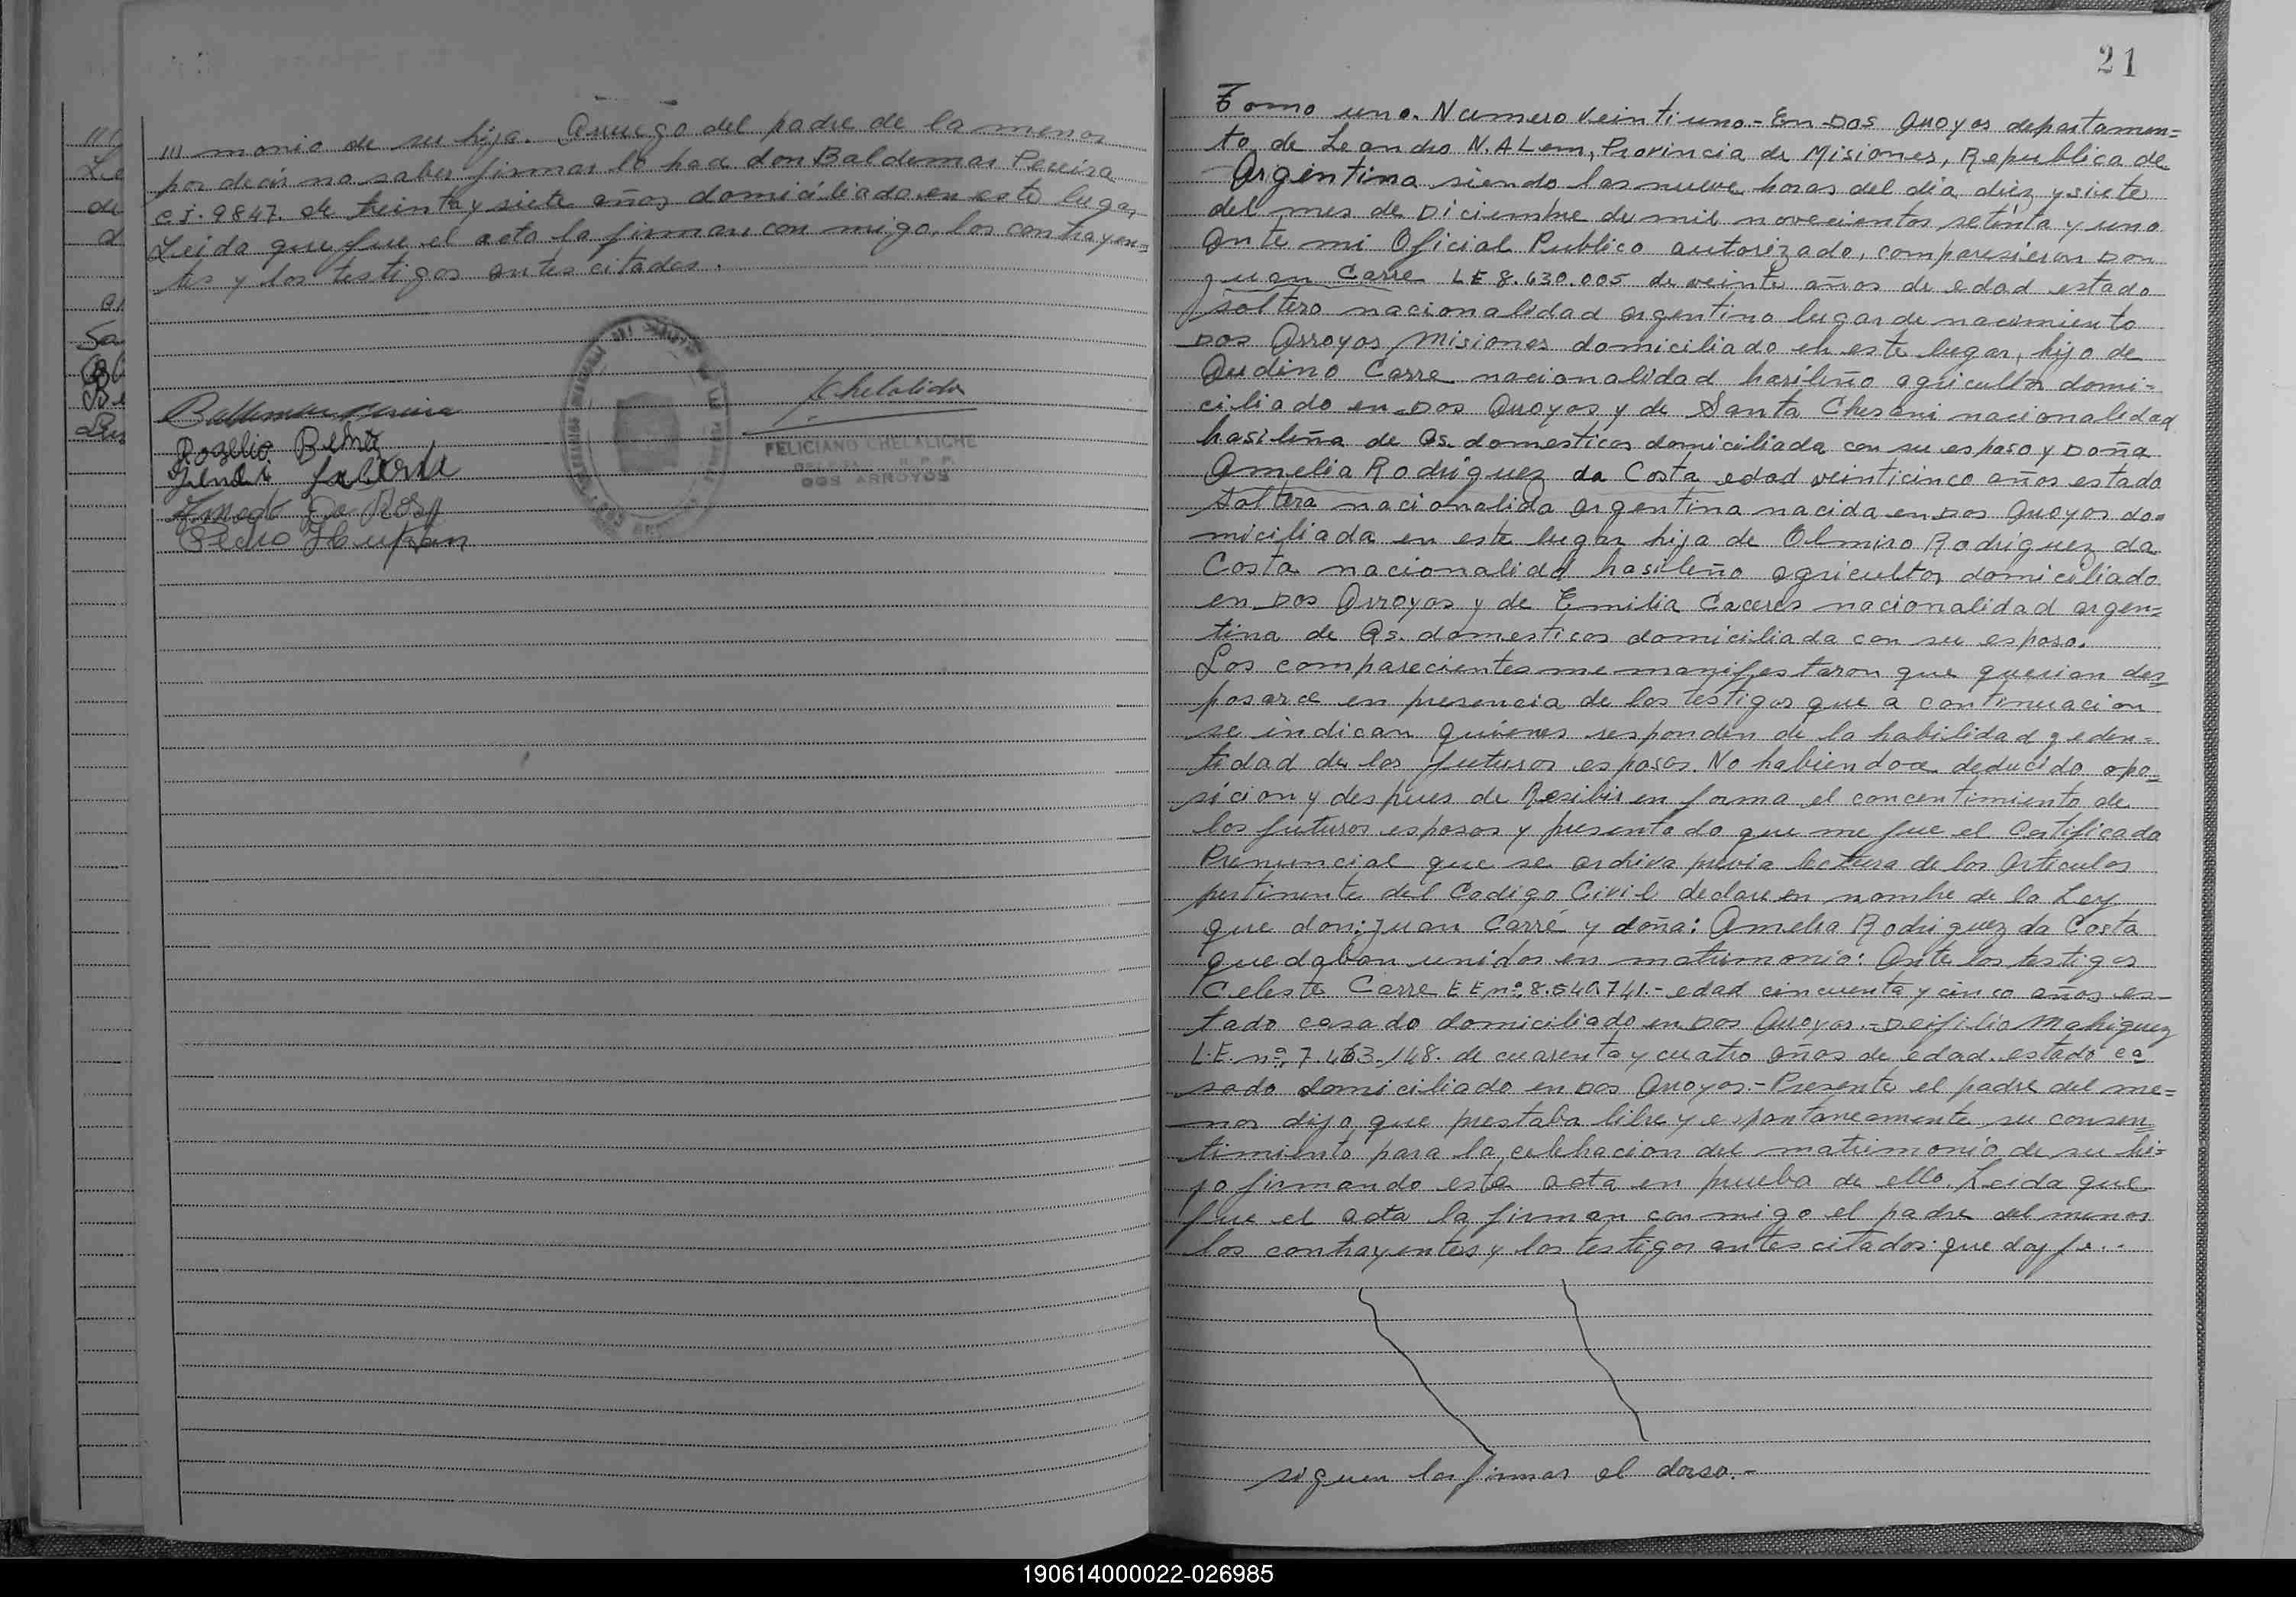 /// monio de su hija. A ruego del padre de la menor
por decir no saber firmar lo hace don Baldemar Pereira
c.i. 9847. de treinta y siete años domiciliado en este lugar
Leida que fue el acta la firman con migo, los contrayen=
tes y los testigos antes citados.
Rogelio
Pedro
FELICIANO CHELALICHE
DOS ARROYOS
21
Tomo uno. Numero Veintiuno.- En Dos Arroyos departamen=
to de Leandro N. ALem, Provincia de Misiones, Republica de
Argentina siendo las nueve horas del dia diez y siete
del mes de Diciembre de mil novecientos setenta y uno
Ante mi Oficial Publico autorizado, comparesieron Don
Juan Carre LE 8.630.005 de veinte años de edad estado
soltero nacionalidad argentino lugar de nacimiento
Dos Arroyos Misiones domiciliado en este lugar, hijo de
Audino Carre nacionalidad brasileño agricultor domi=
ciliado en Dos Arroyos y de Santa Chesani nacionalidad
brasileña de Qs. domesticos domiciliada con su esposo y Doña
Amelia Rodriguez da Costa edad veinticinco años estado
Soltera nacionalida argentina nacida en Dos Arroyos do=
miciliada en este lugar hija de Olmiro Rodriguez da
Costa nacionalidad brasileño agricultor domiciliado
en Dos Arroyos y de Emilia Caceres nacionalidad argen=
tina de Qs. domesticos domiciliada con su esposo.
Los comparecientes me manifestaron que querian des=
posarce en presencia de los testigos que a continuacion
se indican quienes responden de la habilidad y eden=
tidad de los futuros esposos. No habiendoce deducido opo=
sicion y despues de Resibir en forma el concentimiento de
los futuros esposos y presentado que me fue el Certificado
Prenuncial que se archiva previa lectura de los Articulos
pertinente del Codigo Civil declare en nombre de la Ley
que don: Juan Carré y doña: Amelia Rodriguez da Costa
quedaban unidos en matrimonio: Ante los testigos
Celeste Carre E E nº 8.540.741.- edad cincuenta y cinco años es-
tado casado domiciliado en Dos Arroyos.- Deifilio Mahiquez
L.E. nº 7.463.148. de cuarenta y cuatro años de edad estado ca
sado domiciliado en Dos Arroyos.- Presente el padre del me=
nor dijo que prestaba libre y espontaneamente su consen=
timiento para la celebracion del matrimonio de su hi=
jo firmando esta acta en prueba de ello. Leida que
fue el acta la firman con migo el padre del menor
los contrayentes y los testigos antes citados que doy fe..
siguen las firmas al dorso.-
190614000022-026985